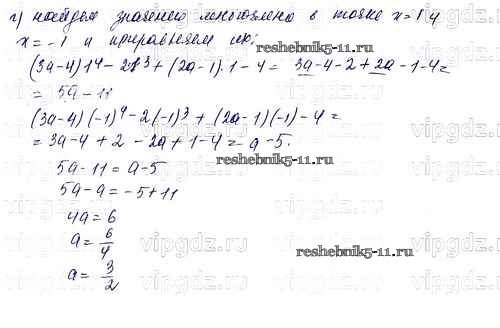 г) найдем значения многочлена в точке x=1 и
x=-1 и приравняем их:
reshebnik5-11.ru
(3a-4)1⁴-2·1³+(2a-1)·1-4= 3a-4-2+2a-1-4=
= 5a-11
(3a-4)(-1)⁴-2(-1)³+(2a-1)(-1)-4=
=3a-4+2-2a+1-4=a-5.
reshebnik5-11.ru
5a-11=a-5
5a-a=-5+11
4a=6
a=6/4
reshebnik5-11.ru
a=3/2
vipgdz.ru